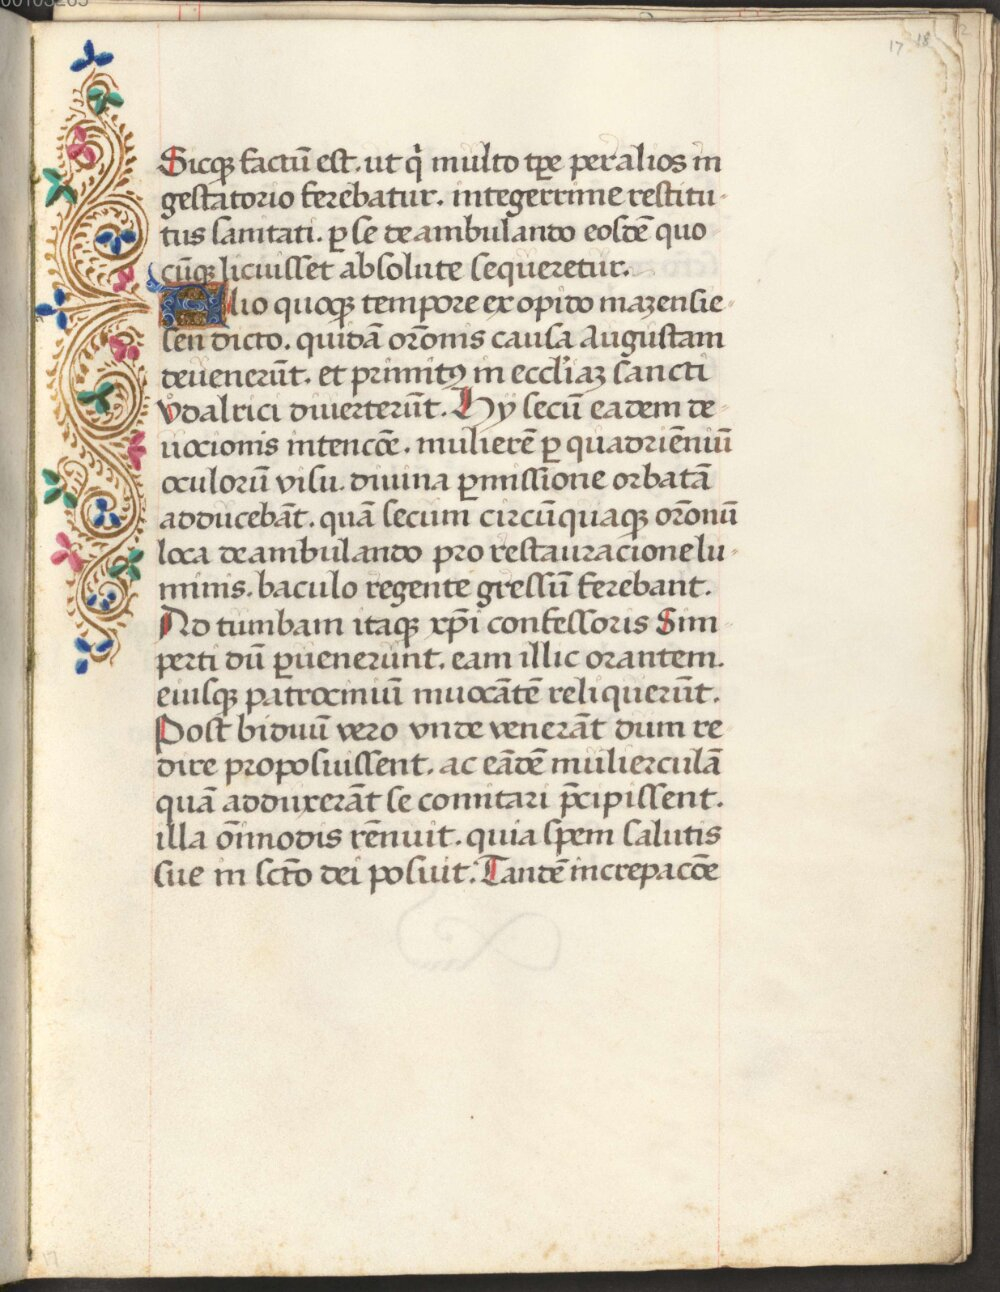 00105265
17 18
12
Sicq̃ factũ est. ut q̃ multo tpe per alios in
gestatorio ferebatur. integerrime restitu-
tus sanitati. ꝑ se deambulando eosdẽ quo
cũq̃ licuisset absolute sequeretur.
Alio quoq̃ tempore ex opido mazensie-
sen dicto. quidã orõnis causa Augustam
deuenerũt. et primitꝰ in eccl'iaz sancti
Vdalrici diuerterũt. Hy secũ eadem de-
uocionis intencõe. mulierẽ ꝑ quadriẽniũ
oculorũ visu. diuina ꝑmissione orbatã
adducebãt. quã secum circũquaq̃ orõnũ
loca deambulando pro restauracione lu-
minis. baculo regente gressũ ferebant.
Ad tumbam itaq̃ xp̃i confessoris Sim-
perti dũ ꝑuenerunt. eam illic orantem.
eiusq̃ patrociniũ inuocãtẽ reliquerũt.
Post biduũ vero vnde venerãt dum re-
dire proposuissent. ac eãdẽ mulierculã
quã adduxerãt se comitari p̃cipissent.
illa oĩnmodis rẽnuit. quia spem salutis
sue in sctõ dei posuit. Tandẽ increpacõe
17